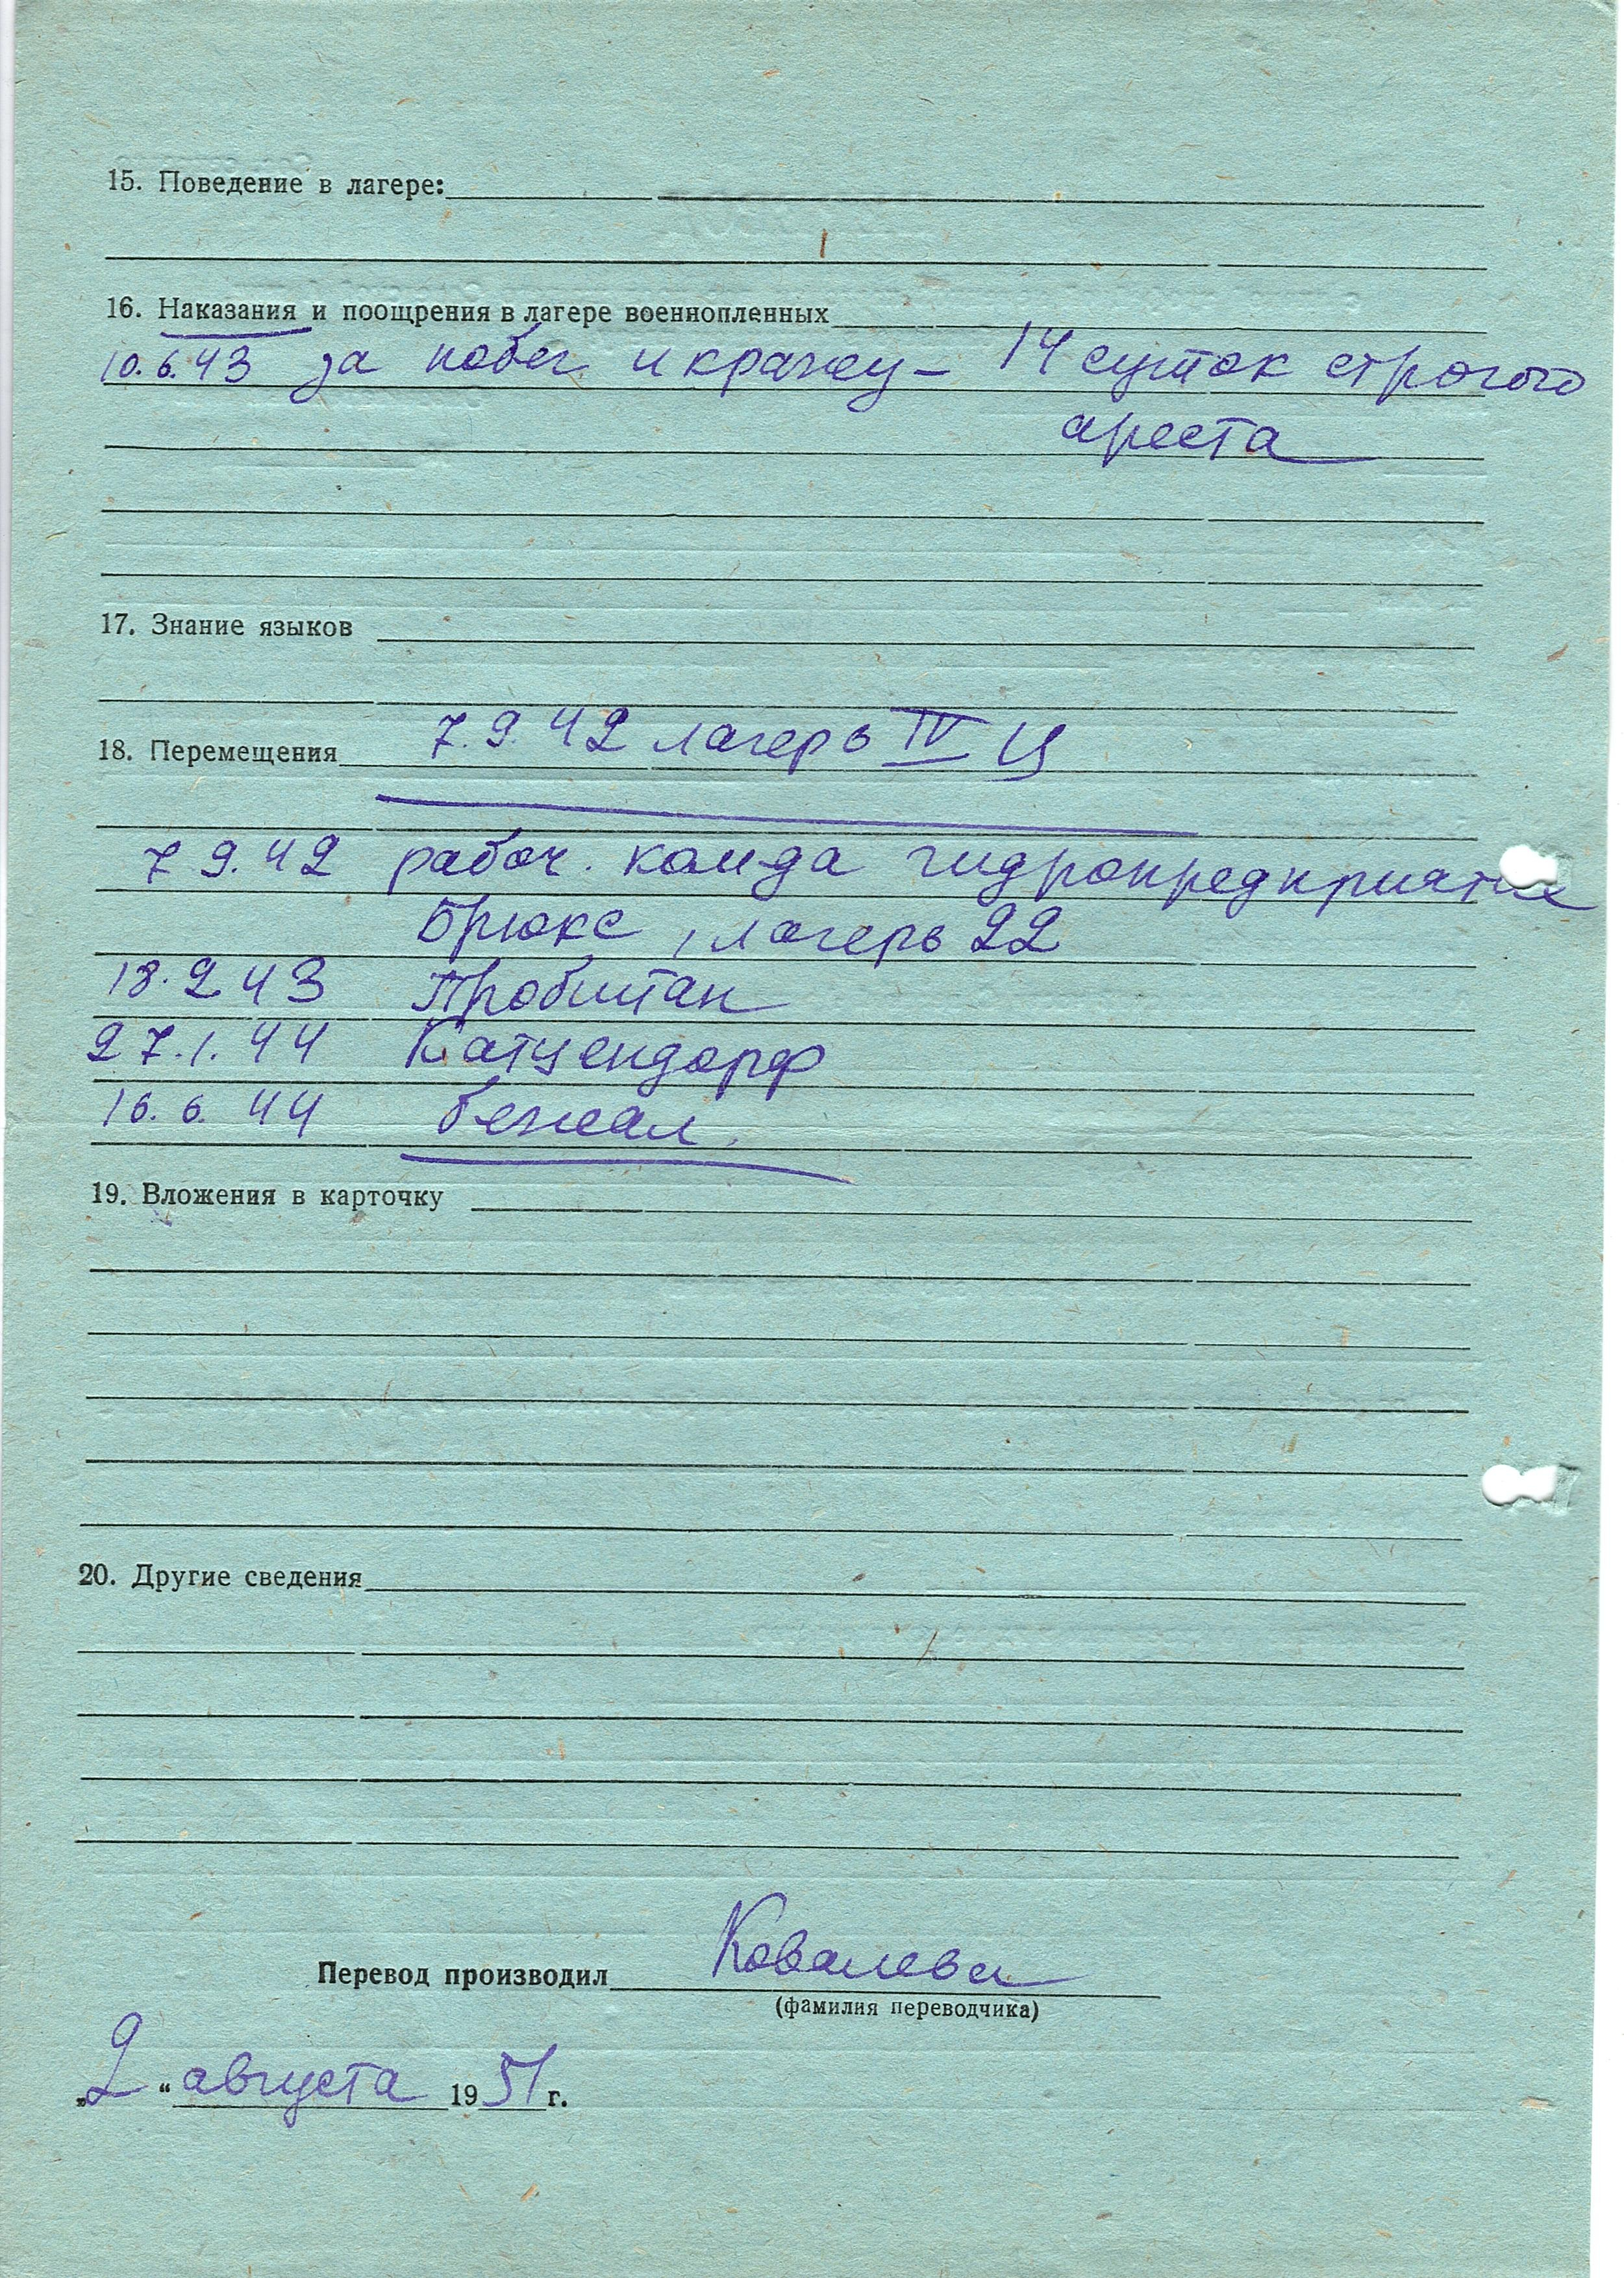 15. Поведение в лагере:
16. Наказания и поощрения в лагере военнопленных
10.6.43 за побег и кражу – 14 суток строгого
ареста
17. Знание языков
18. Перемещения 7.9.42 лагерь IV Ц
7 9.42 рабоч. ком-да гидропредприятие
Брюкс, лагерь 22
18.2 43 Пробштан
27.1.44 Катцендорф
16.6.44 бежал.
19. Вложения в карточку
20. Другие сведения
Перевод производил Ковалева
(фамилия переводчика)
„2“ августа 1951 г.